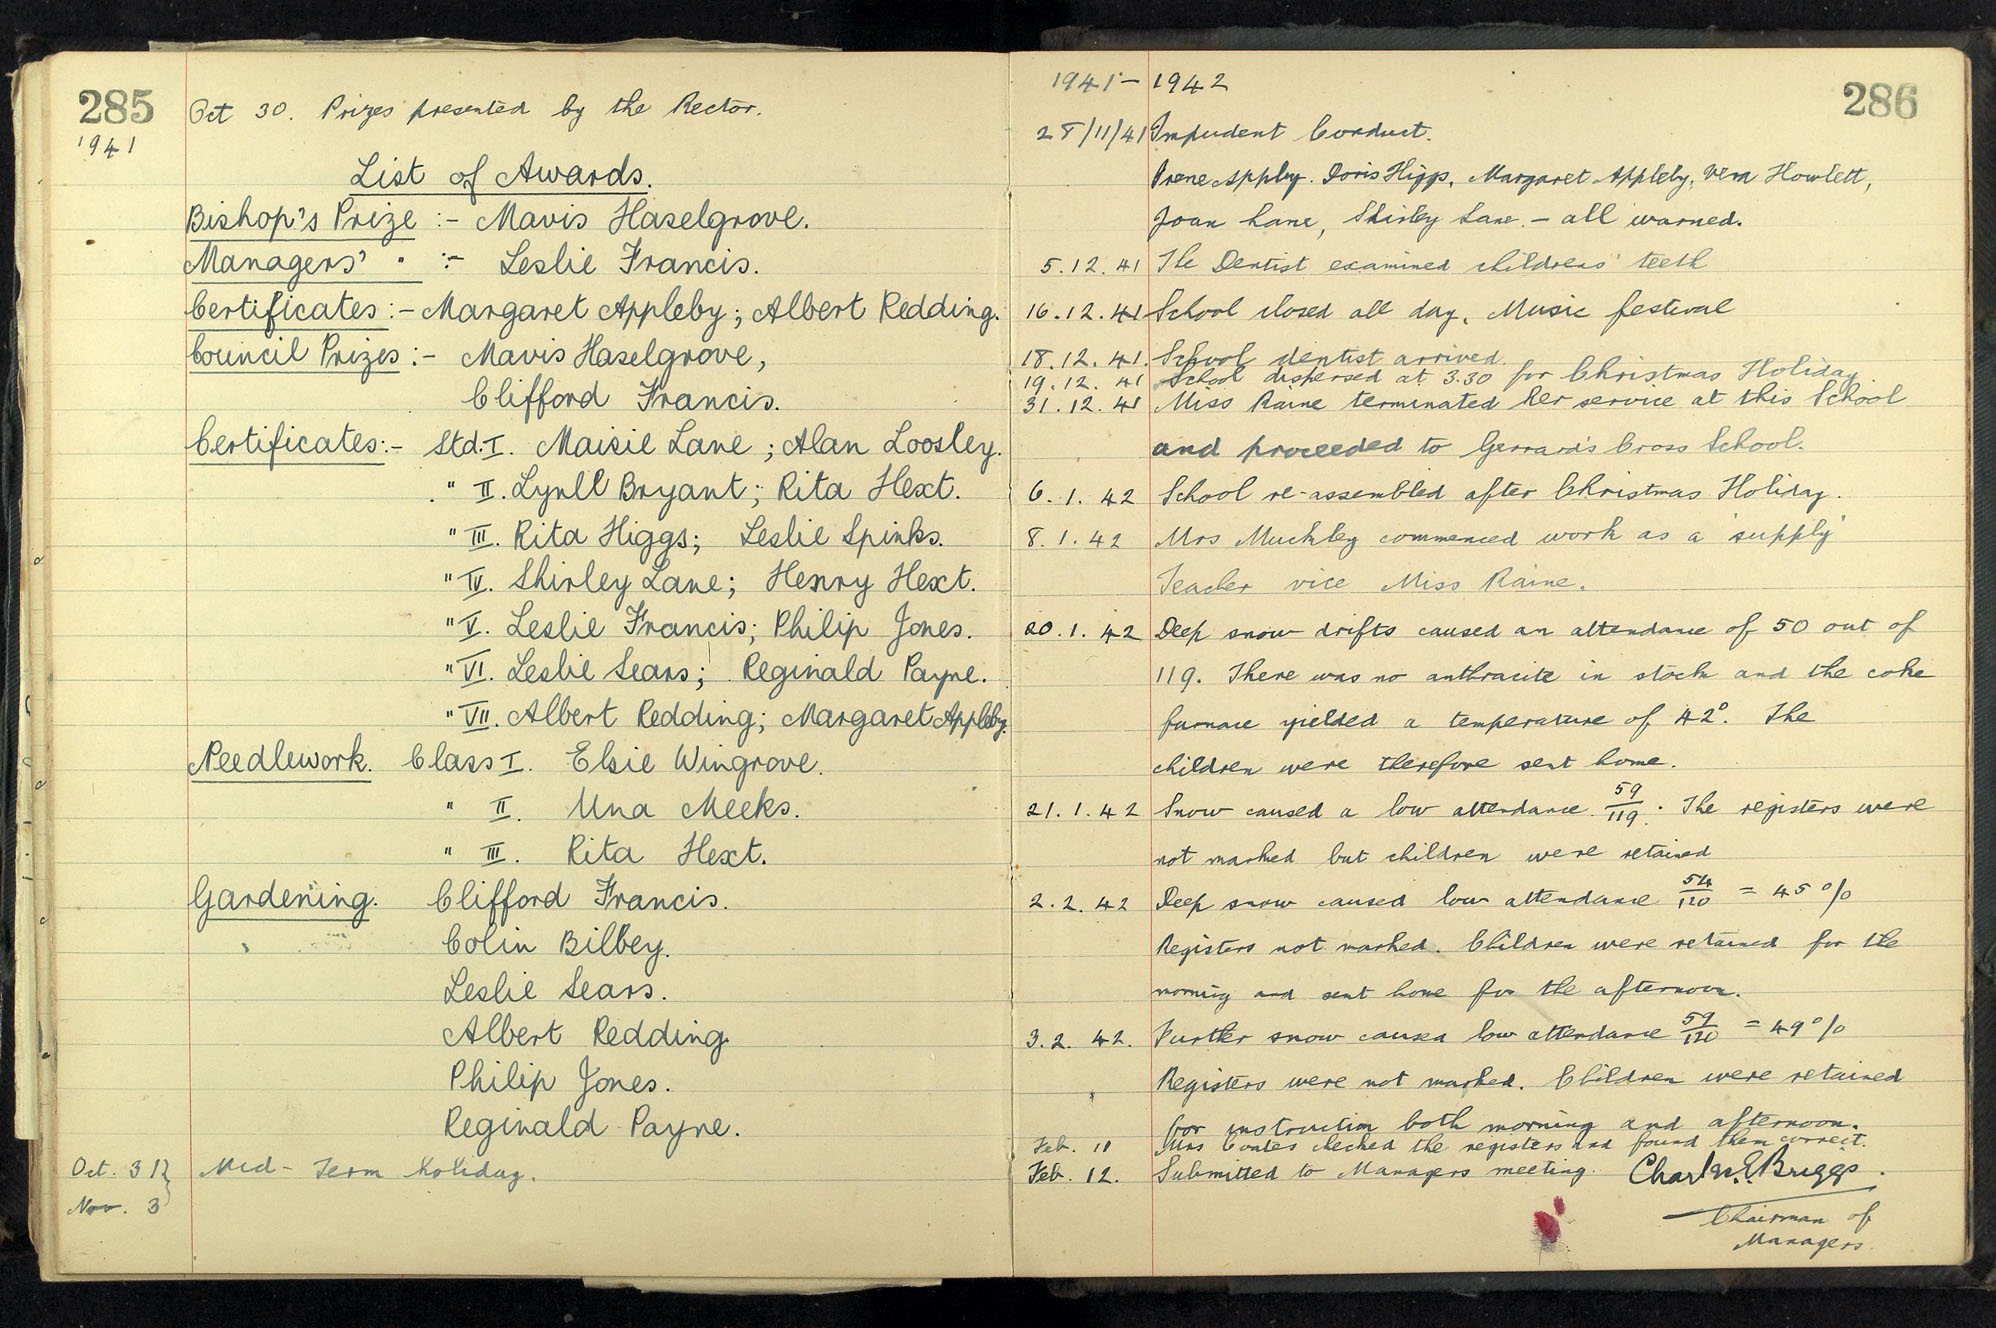 285
1941
Oct 30. Prizes presented by the Rector.
List of Awards.
Bishop's Prize :- Mavis Haselgrove.
Managers' " :- Leslie Francis.
Certificates :- Margaret Appleby; Albert Redding.
Council Prizes :- Mavis Haselgrove,
Clifford Francis.
Certificates:- Std. I. Maisie Lane ; Alan Loosley.
" II. Lynll Bryant; Rita Hext.
" III. Rita Higgs; Leslie Spinks.
" IV. Shirley Lane; Henry Hext.
" V. Leslie Francis; Philip Jones.
" VI. Leslie Sears; Reginald Payne.
" VII. Albert Redding; Margaret Appleby.
Needlework. Class I. Elsie Wingrove.
" II. Una Meeks.
" III. Rita Hext.
Gardening. Clifford Francis.
Colin Bilbey.
Leslie Sears.
Albert Redding.
Philip Jones.
Reginald Payne.
Oct. 31 } Mid-Term Holiday.
Nov. 3
286
1941 - 1942
28/11/41 Impudent Conduct.
Irene Appleby. Doris Higgs, Margaret Appleby, Vera Howlett,
Joan Lane, Shirley Lane. - all warned.
5.12.41 The Dentist examined childrens' teeth
16.12.41 School closed all day, Music festival
18.12.41. School dentist arrived.
19.12.41 School dispersed at 3.30 for Christmas Holiday
31.12.41 Miss Raine terminated her service at this School
and proceeded to Gerrards Cross School.
6.1.42 School re-assembled after Christmas Holiday.
8.1.42 Mrs Muckley commenced work as a 'supply'
Teacher vice Miss Raine.
20.1.42 Deep snow drifts caused an attendance of 50 out of
119. There was no anthracite in stock and the coke
furnace yielded a temperature of 42°. The
children were therefore sent home.
21.1.42 Snow caused a low attendance 59/119. The registers were
not marked but children were retained
2.2.42 Deep snow caused low attendance 54/120 = 45%
Registers not marked. Children were retained for the
morning and sent home for the afternoon.
3.2.42. Further snow caused low attendance 59/120 = 49%
Registers were not marked. Children were retained
for instruction both morning and afternoon.
Feb. 11 Mrs Coates checked the registers and found them correct.
Feb. 12. Submitted to Managers meeting. Charles E Briggs.
Chairman of
Managers.